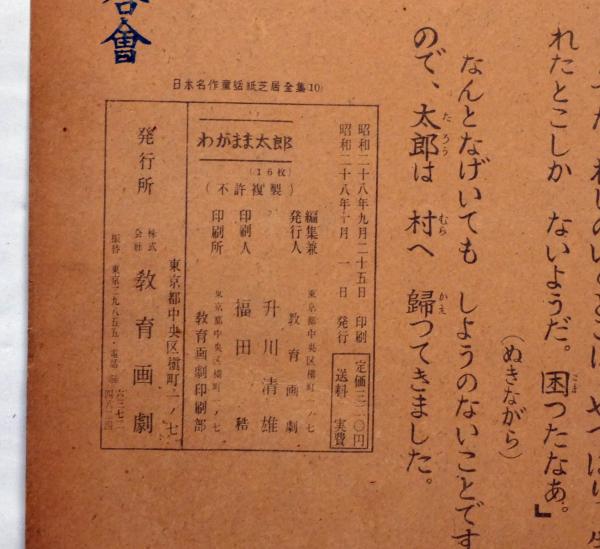 れたとこしか ないようだ。困つたなあ。』
(ぬきながら)
なんとなげいても しようのないことです
ので、太郎は 村へ 歸つてきました。
會
日本名作童話紙芝居全集(10)
昭和二十八年九月二十五日 印刷
昭和二十八年十月 一 日 発行
定価三二〇円
送料 実費
わがまま太郎
(16枚)
(不許複製)
編集兼
発行人
東京都中央区槇町一ノ七
教育画劇
升川清雄
印刷人
福田
印刷所
東京都中央区槇町一ノ七
教育画劇印刷部
東京都中央区槇町一ノ七
発行所
株式
会社
教育画劇